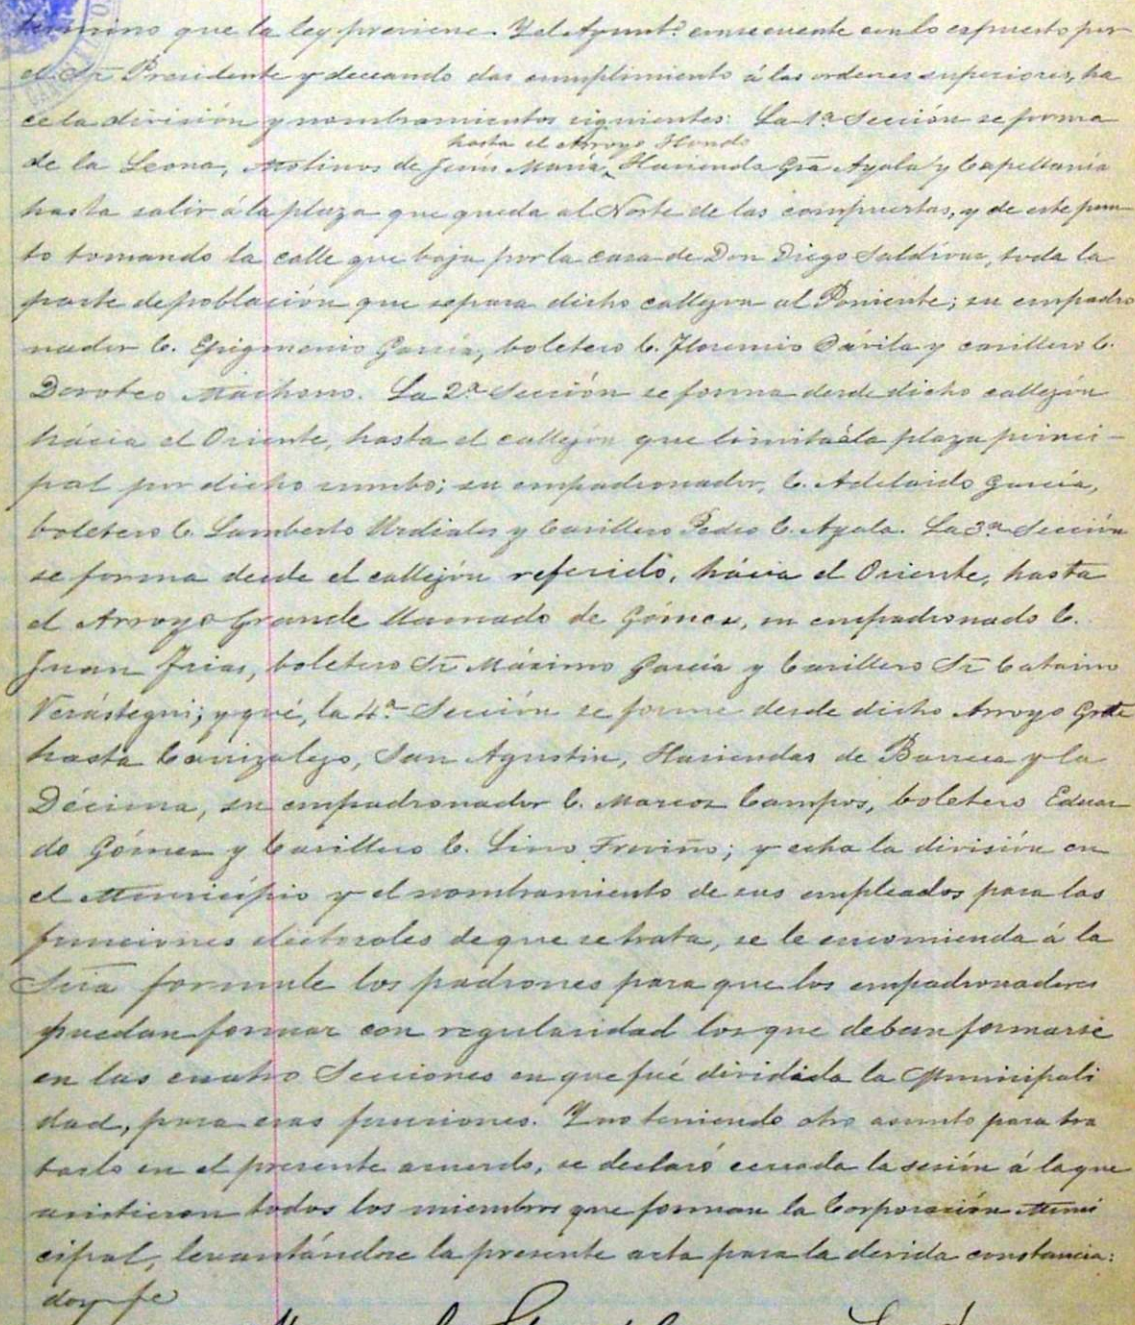 termino que la ley previene. Y el Ayunt.º consecuente con lo espuesto por
el Sr̄. Presidente y deceando dar cumplimiento á las ordenes superiores, ha
ce la división y nombramientos siguientes: La 1ª Sección se forma
hasta el Arroyo Hondo
de la Leona, Molinos de Jesús María, Hacienda Gr̄a Ayala y Capellanía
hasta salir á la plaza que queda al Norte de las compuertas, y de este pun
to tomando la calle que baja por la casa de Don Diego Saldívar, toda la
parte de población que separa dicho callejon al Poniente; su empadro
nador C. Epigmenio García, boletero C. Florencio Dávila y casillero C.
Doroteo Machorro. La 2ª Sección se forma desde dicho callejón
hácia el Oriente, hasta el callejón que limita á la plaza princi-
pal por dicho rumbo; su empadronador, C. Adelaido García,
boletero C. Lamberto Urdiales y Casillero Pedro C. Ayala. La 3ª Sección
se forma desde el callejón referido, hácia el Oriente, hasta
el Arroyo Grande llamado de Gómez, su empadronado C.
Juan Frias, boletero Sr̄ Máximo García y Casillero Sr̄ Catarino
Verástegui; y qué, la 4ª Sección se forme desde dicho Arroyo Grde
hasta Carrizalejo, San Agustin, Haciendas de Barrera y la
Décima, su empadronador C. Marcos Campos, boletero Eduar
do Gómez y Casillero C. Lino Treviño; y echa la división en
el Municipio y el nombramiento de sus empleados para las
funciones electorales de que se trata, se le encomienda á la
Sria formule los padrones para que los empadronadores
puedan formar con regularidad los que deban formarse
en las cuatro Secciones en que fué dividida la Municipali
dad, para esas funciones. Y no teniendo otro asunto para tra
tarlo en el presente acuerdo, se declaró cerrada la sesión á la que
asistieron todos los miembros que forman la Corporación Muni
cipal, levantándose la presente acta para la devida constancia:
doy fe